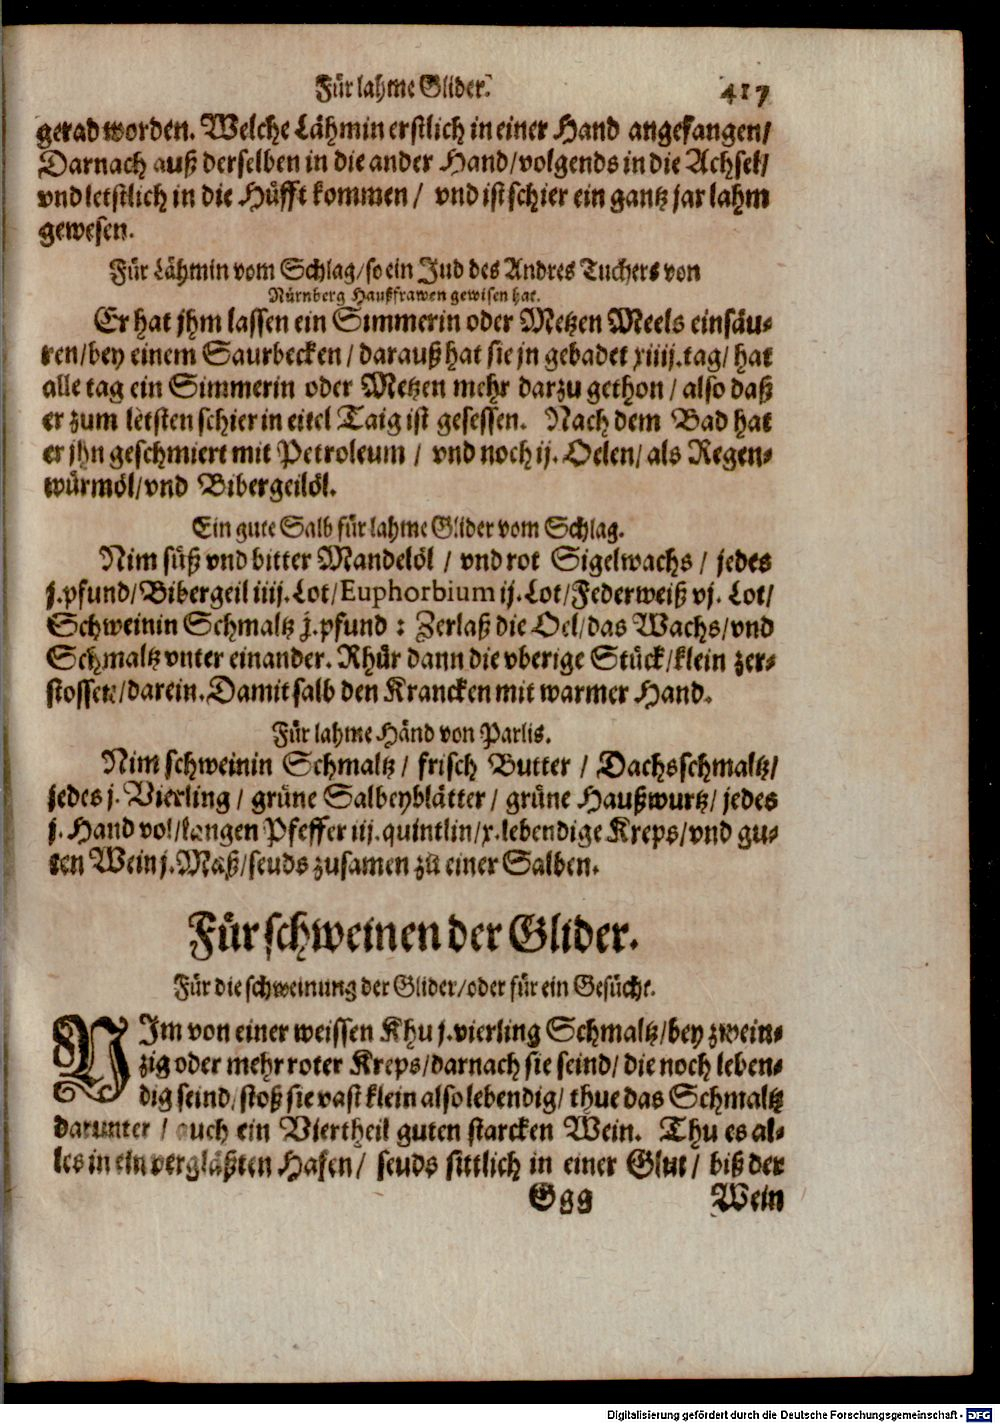 Für lahme Glider. 417
gerad worden. Welche Lähmin erstlich in einer Hand angefangen/
Darnach auß derselben in die ander Hand/volgends in die Achsel/
vnd letstlich in die Hüfft kommen/ vnd ist schier ein gantz jar lahm
gewesen.
Für Lähmin vom Schlag/so ein Jud des Andres Tuchers von
Nürnberg Haußfrawen gewisen hat.
Er hat jhm lassen ein Simmerin oder Metzen Meels einsäu-
ren/bey einem Saurbecken/darauß hat sie jn gebadet xiiij.tag/ hat
alle tag ein Simmerin oder Metzen mehr darzu gethon/ also daß
er zum letsten schier in eitel Taig ist gesessen. Nach dem Bad hat
er jhn geschmiert mit Petroleum / vnd noch ij. Oelen/ als Regen-
würmöl/vnd Bibergeilöl.
Ein gute Salb für lahme Glider vom Schlag.
Nim süß vnd bitter Mandelöl / vnd rot Sigelwachs / jedes
j.pfund/Bibergeil iiij.Lot/Euphorbium ij.Lot/Federweiß vj. Lot/
Schweinin Schmaltz j.pfund : Zerlaß die Oel/das Wachs/vnd
Schmaltz vnter einander. Rhür dann die vberige Stück/klein zer-
stossen/darein. Damit salb den Krancken mit warmer Hand.
Für lahme Händ von Parlis.
Nim schweinin Schmaltz/ frisch Butter / Dachsschmaltz/
jedes j. Vierling / grüne Salbeyblätter / grüne Haußwurtz/ jedes
j. Hand vol/langen Pfeffer iij.quintlin/x.lebendige Kreps/vnd gu-
ten Wein j.Maß/seuds zusamen zu einer Salben.
Für schweinen der Glider.
Für die schweinung der Glider/oder für ein Gesücht.
NIm von einer weissen Khu j.vierling Schmaltz/bey zwein-
zig oder mehr roter Kreps/darnach sie seind/ die noch leben-
dig seind/stoß sie vast klein also lebendig/ thue das Schmaltz
darunter / auch ein Viertheil guten starcken Wein. Thu es al-
les in ein vergläßten Hafen/ seuds sittlich in einer Glut/ biß der
Ggg Wein
Digitalisierung gefördert durch die Deutsche Forschungsgemeinschaft - DFG